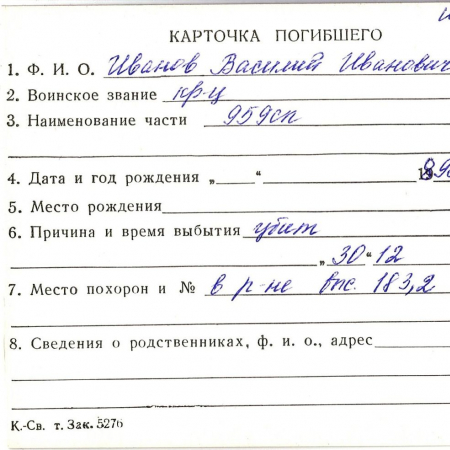 КАРТОЧКА ПОГИБШЕГО
1. Ф. И. О. Иванов Василий Иванович
2. Воинское звание кр-ц
3. Наименование части 959сп
4. Дата и год рождения „ “
5. Место рождения
6. Причина и время выбытия убит
„30“12
7. Место похорон и № в р-не выс. 183,2
8. Сведения о родственниках, ф. и. о., адрес
К.-Св. т. Зак. 5276